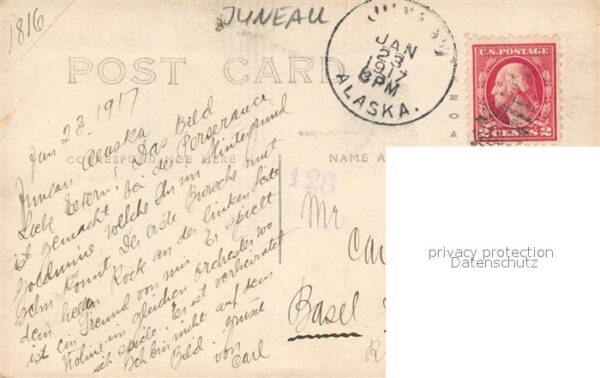 1816
JUNEAU
JUNEAU
JAN
23
1917
8 PM
ALASKA.
U.S. POSTAGE
2 CENTS 2
POST CARD
CORRESPONDENCE HERE
NAME A
128
Jan 23. 1917
Juneau Alaska
Liebe Eltern! Das Bild
ist gemacht bei der Perserance
Goldmine, welche Ihr im Hintergrund
sehn könnt. Der erste Bursche mit
dem hellen Rock an der linken Seite
ist ein Freund von mir. Er spielt
Violine im gleichen orchester wo
ich spiele. Er ist verheiratet
Ich bin nicht auf dem
Bild. Grüsst
von Carl
Mr
Car
Basel
privacy protection
Datenschutz